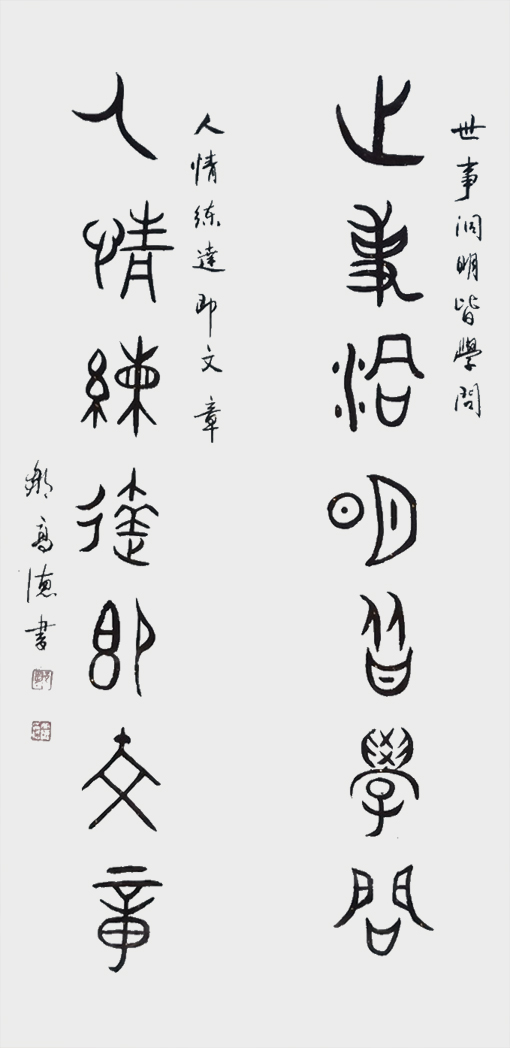 世事洞明皆學問
世事洞明皆學問
人情練達即文章
人情練達即文章
高德書